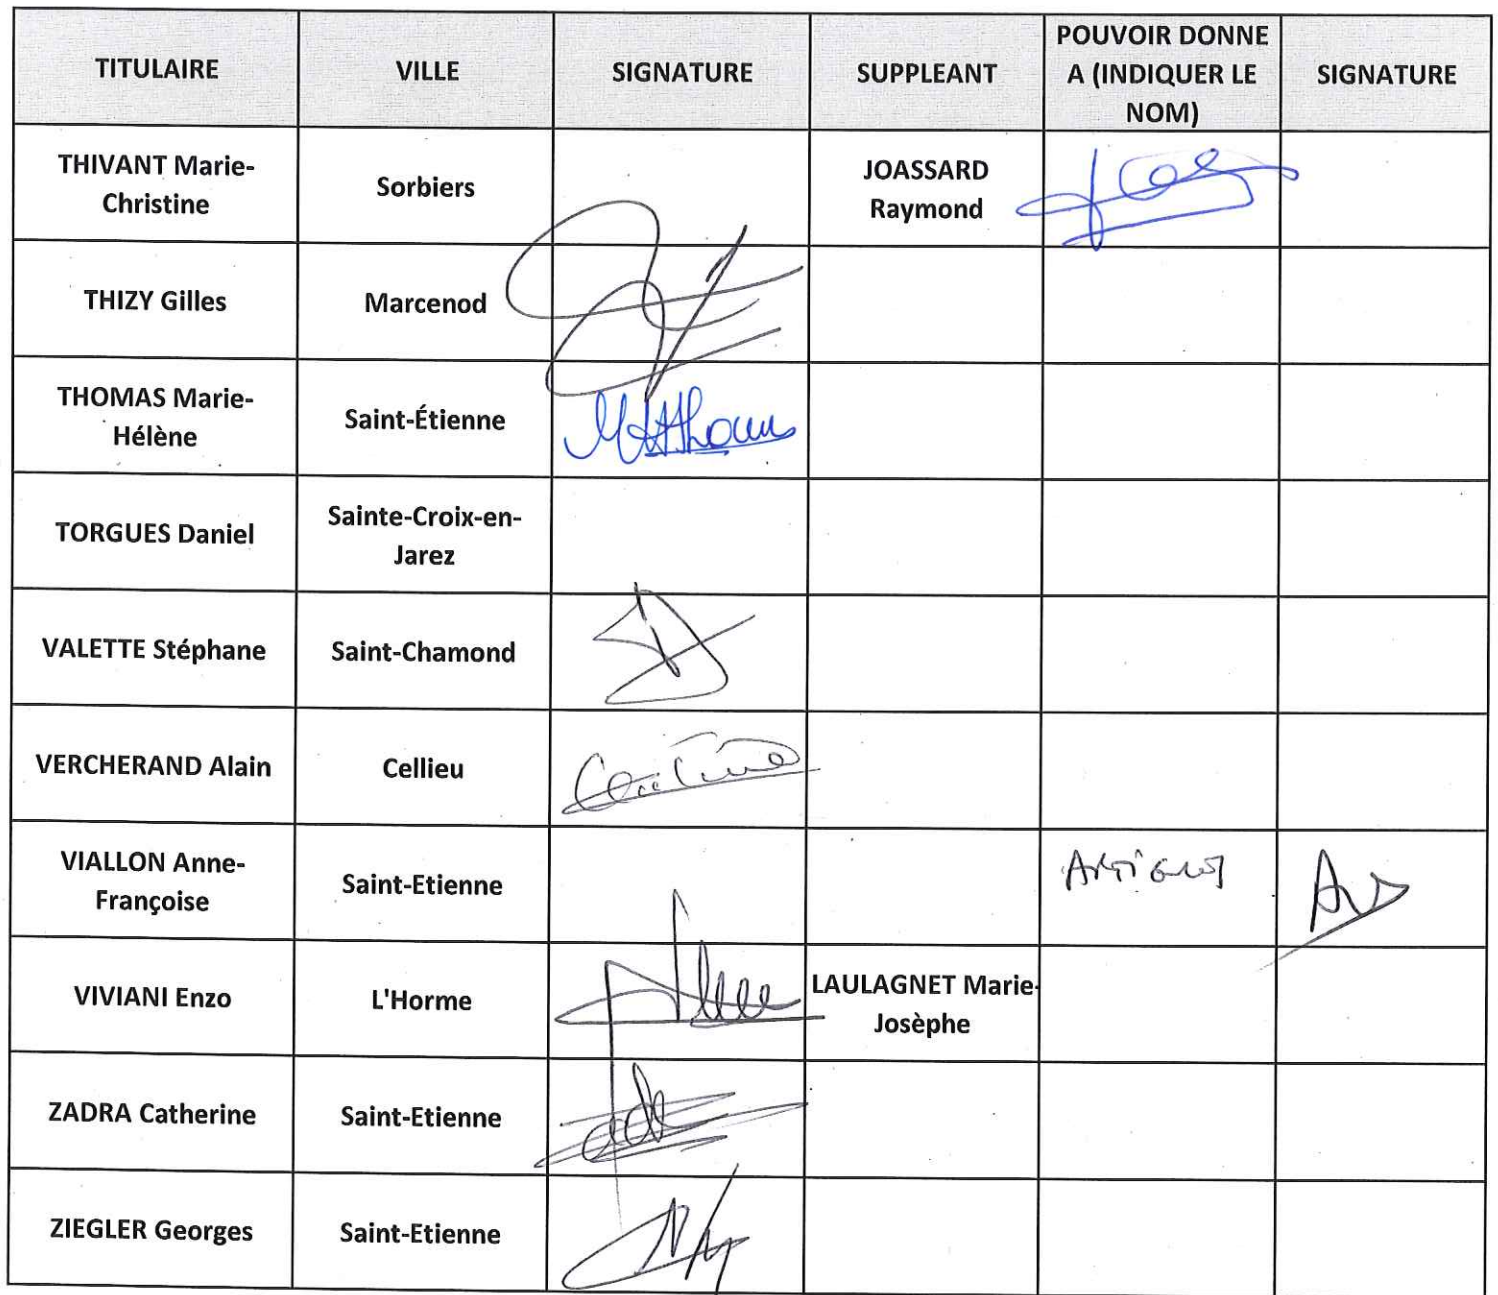 TITULAIRE
VILLE
SIGNATURE
SUPPLEANT
POUVOIR DONNE
A (INDIQUER LE
NOM)
SIGNATURE
THIVANT Marie-
Christine
Sorbiers
JOASSARD
Raymond
THIZY Gilles
Marcenod
THOMAS Marie-
Hélène
Saint-Étienne
TORGUES Daniel
Sainte-Croix-en-
Jarez
VALETTE Stéphane
Saint-Chamond
VERCHERAND Alain
Cellieu
VIALLON Anne-
Françoise
Saint-Etienne
VIVIANI Enzo
L'Horme
LAULAGNET Marie-
Josèphe
ZADRA Catherine
Saint-Etienne
ZIEGLER Georges
Saint-Etienne